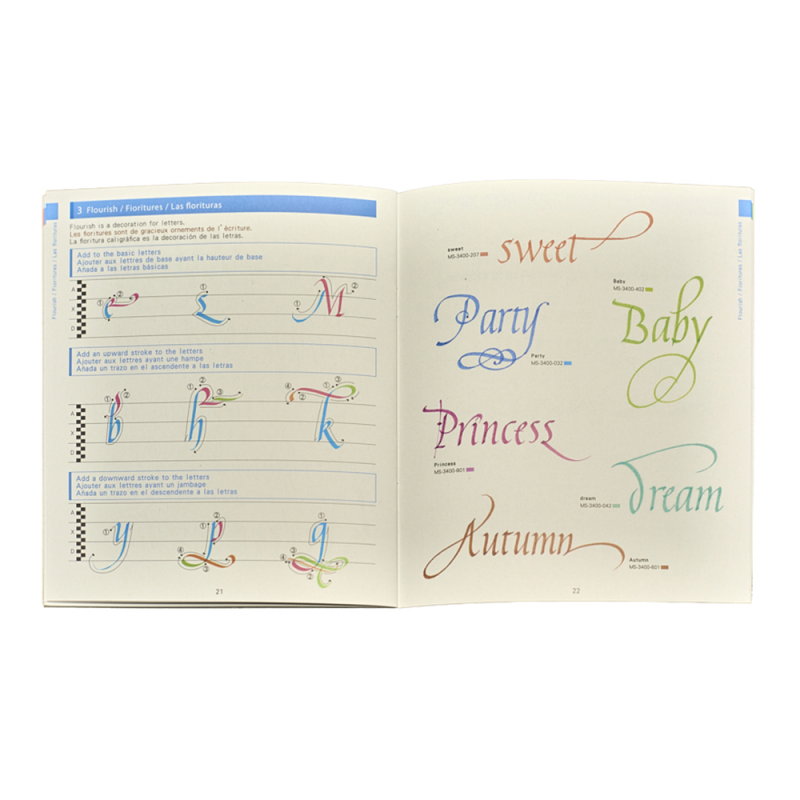 3 Flourish / Fioritures / Las florituras
Flourish is a decoration for letters.
Les fioritures sont de gracieux ornements de l'écriture.
La floritura caligráfica es la decoración de las letras.
Add to the basic letters
Ajouter aux lettres de base ayant la hauteur de base
Añada a las letras básicas
A
X
D
① ② ① ① ②
e s M
Add an upward stroke to the letters
Ajouter aux lettres ayant une hampe
Añada un trazo en el ascendente a las letras
A
X
D
① ② ① ② ③ ④ ② ① ③
b h k
Add a downward stroke to the letters
Ajouter aux lettres ayant un jambage
Añada un trazo en el descendente a las letras
A
X
D
① ② ① ④ ③ ② ① ③ ④ ②
y p g
21
Flourish / Fioritures / Las florituras
sweet
MS-3400-207
sweet
Party
Party
MS-3400-032
Baby
MS-3400-402
Baby
Princess
Princess
MS-3400-801
dream
MS-3400-042
dream
Autumn
Autumn
MS-3400-601
22
Flourish / Fioritures / Las florituras